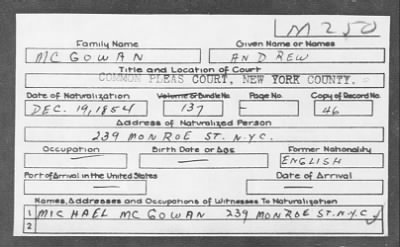 M 250
Family Name Given Name or Names
MC GOWAN ANDREW
Title and Location of Court
COMMON PLEAS COURT, NEW YORK COUNTY.
Date of Naturalization Volume or Bundle No. Page No. Copy of Record No.
DEC. 19, 1854 137 — 46
Address of Naturalized Person
239 MONROE ST. N.Y.C.
Occupation Birth Date or Age Former Nationality
— — ENGLISH
Port of Arrival in the United States Date of Arrival
— —
Names, Addresses and Occupations of Witnesses To Naturalization
1 MICHAEL MC GOWAN 239 MONROE ST. N.Y.C.
2